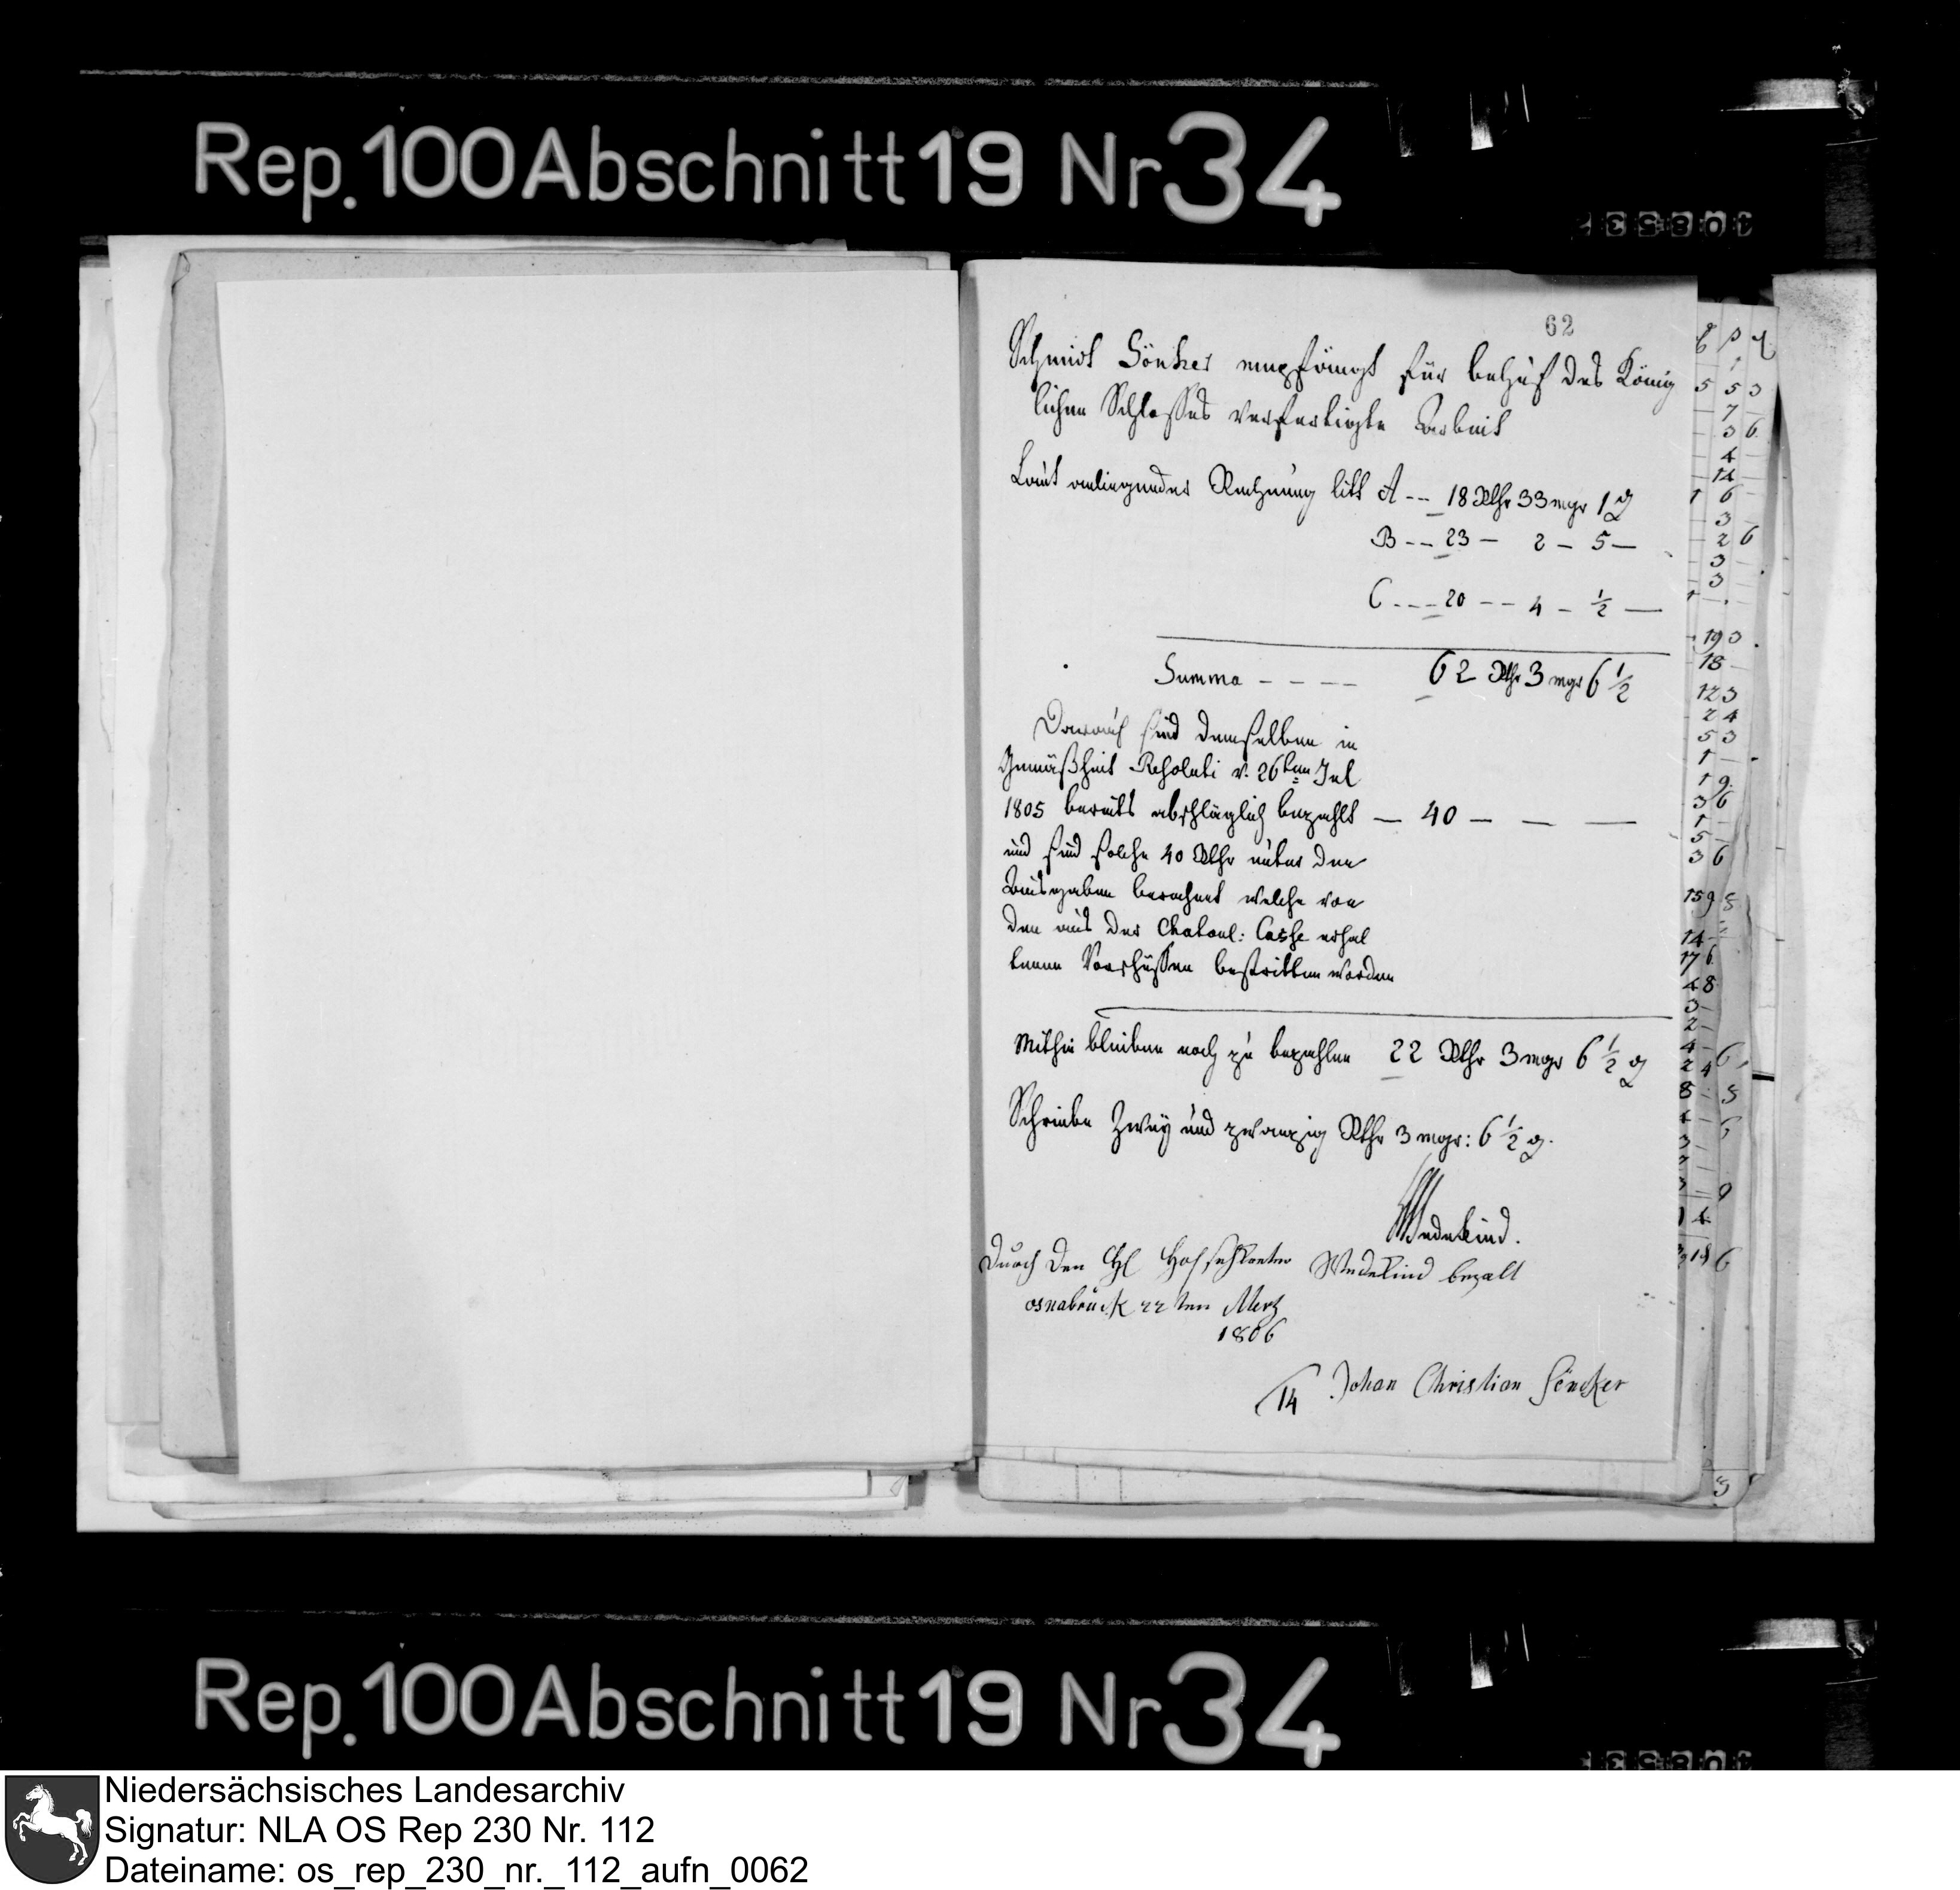 Rep. 100 Abschnitt 19 Nr 34
62
Schmidt Sönker empfängt für behuf des König
lichen Schlosses verfertigte Arbeit
Laut anliegender Rechnung litt A -- 18 Rthr 33 mgr 1 ₰
B -- 23 - 2 - 5 -
C --- 20 -- 4 - ½ -
Summa - - - - 62 Rthr 3 mgr 6 ½
Darauf sind demselben in
Gemäßheit Resoluti v. 26ten Jul
1805 bereits abschläglich bezahlt - 40 - - -
und sind solche 40 Rthr unter den
Ausgaben berechnet welche von
den aus der Chatoul: Casse erhal
tenen Vorschüssen bestritten worden
Mithin bleiben noch zu bezahlen 22 Rthr 3 mgr 6 ½ ₰
Schreibe Zwey und zwanzig Rthr 3 mgr: 6 ½ ₰.
Wedekind.
Durch den H Wedekind bezalt
osnabrück 22 ten Mertz
1806
14 Johan Christian Söncker
Rep. 100 Abschnitt 19 Nr 34
Niedersächsisches Landesarchiv
Signatur: NLA OS Rep 230 Nr. 112
Dateiname: os_rep_230_nr._112_aufn_0062